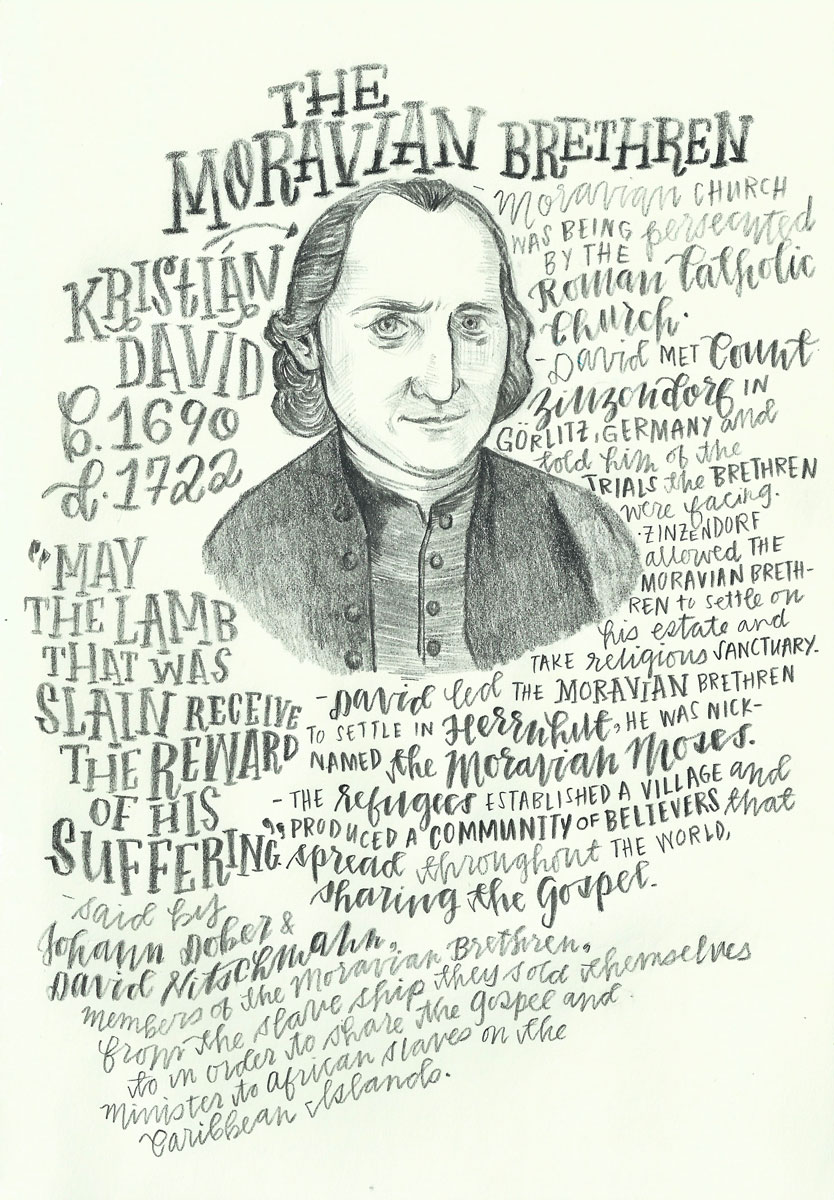 THE
MORAVIAN BRETHREN
KRISTIÁN
DAVID
b. 1690
d. 1722
"MAY
THE LAMB
THAT WAS
SLAIN RECEIVE
THE REWARD
OF HIS
SUFFERING"
- said by
Johann Dober &
David Nitschmann,
members of the Moravian Brethren,
from the slave ship they sold themselves
to in order to share the Gospel and
minister to African slaves on the
Caribbean Islands.
- Moravian CHURCH
WAS BEING persecuted
BY THE
Roman Catholic
Church.
- David MET Count
Zinzendorf IN
GÖRLITZ, GERMANY and
told him of the
TRIALS the BRETHREN
were facing.
· ZINZENDORF
allowed THE
MORAVIAN BRETH-
REN to settle on
his estate and
TAKE religious SANCTUARY.
- David led THE MORAVIAN BRETHREN
TO SETTLE IN Herrnhut, HE WAS NICK-
NAMED the Moravian Moses.
- THE refugees ESTABLISHED A VILLAGE and
PRODUCED A COMMUNITY OF BELIEVERS that
spread throughout THE WORLD,
sharing the Gospel.